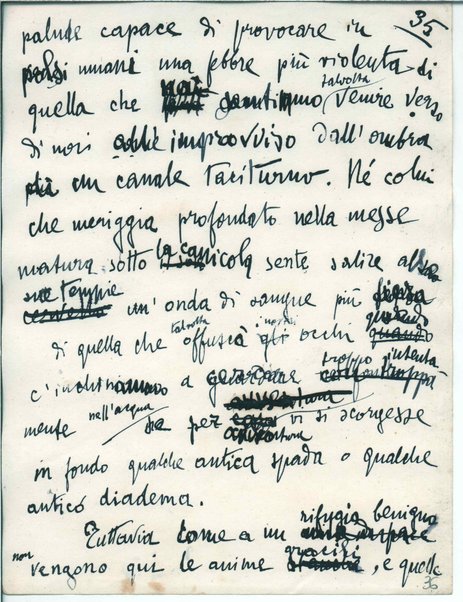 35
palude capace di provocare in
polsi umani una febbre più violenta di
quella che noi sentiamo talvolta venire verso
di noi all'improvviso dall'ombra
di un canale taciturno. Né colui
che meriggia profondato nella messe
matura sotto la canicola sente salire alle
sue tempie un'onda di sangue più fiera
di quella che talvolta offusca i nostri occhi quando
c'inchiniamo a guardare troppo intenta-
mente nell'acqua se per avventura vi si scorgesse
in fondo qualche antica spada o qualche
antico diadema.
Tuttavia come a un rifugio benigno
non vengono qui le anime gracili, e quelle
36